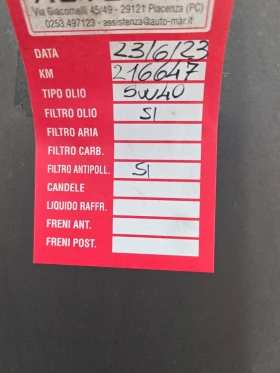 Via Giacomelli 45/49 - 29121 Piacenza (PC)
0253.497123 - assistenza@auto-mar.it
DATA 23/6/23
KM 216647
TIPO OLIO 5W40
FILTRO OLIO SI
FILTRO ARIA
FILTRO CARB.
FILTRO ANTIPOLL. SI
CANDELE
LIQUIDO RAFFR.
FRENI ANT.
FRENI POST.